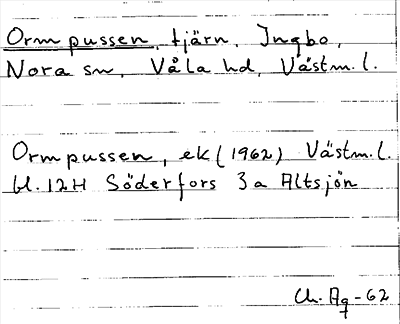 Ormpussen, tjärn, Ingbo,
Nora sn, Våla hd, Västm.l.
Ormpussen, ek (1962) Västm.l.
bl. 12H Söderfors 3a Altsjön
Ch. Ag -62